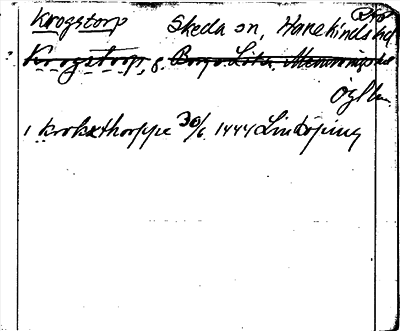 Krogstorp Skeda sn, Hanekinds hd
Krogstorp, s. Borgs Lilla Memmings hd
Ögl
i krokxthorppe 30/6 1444 Linköping